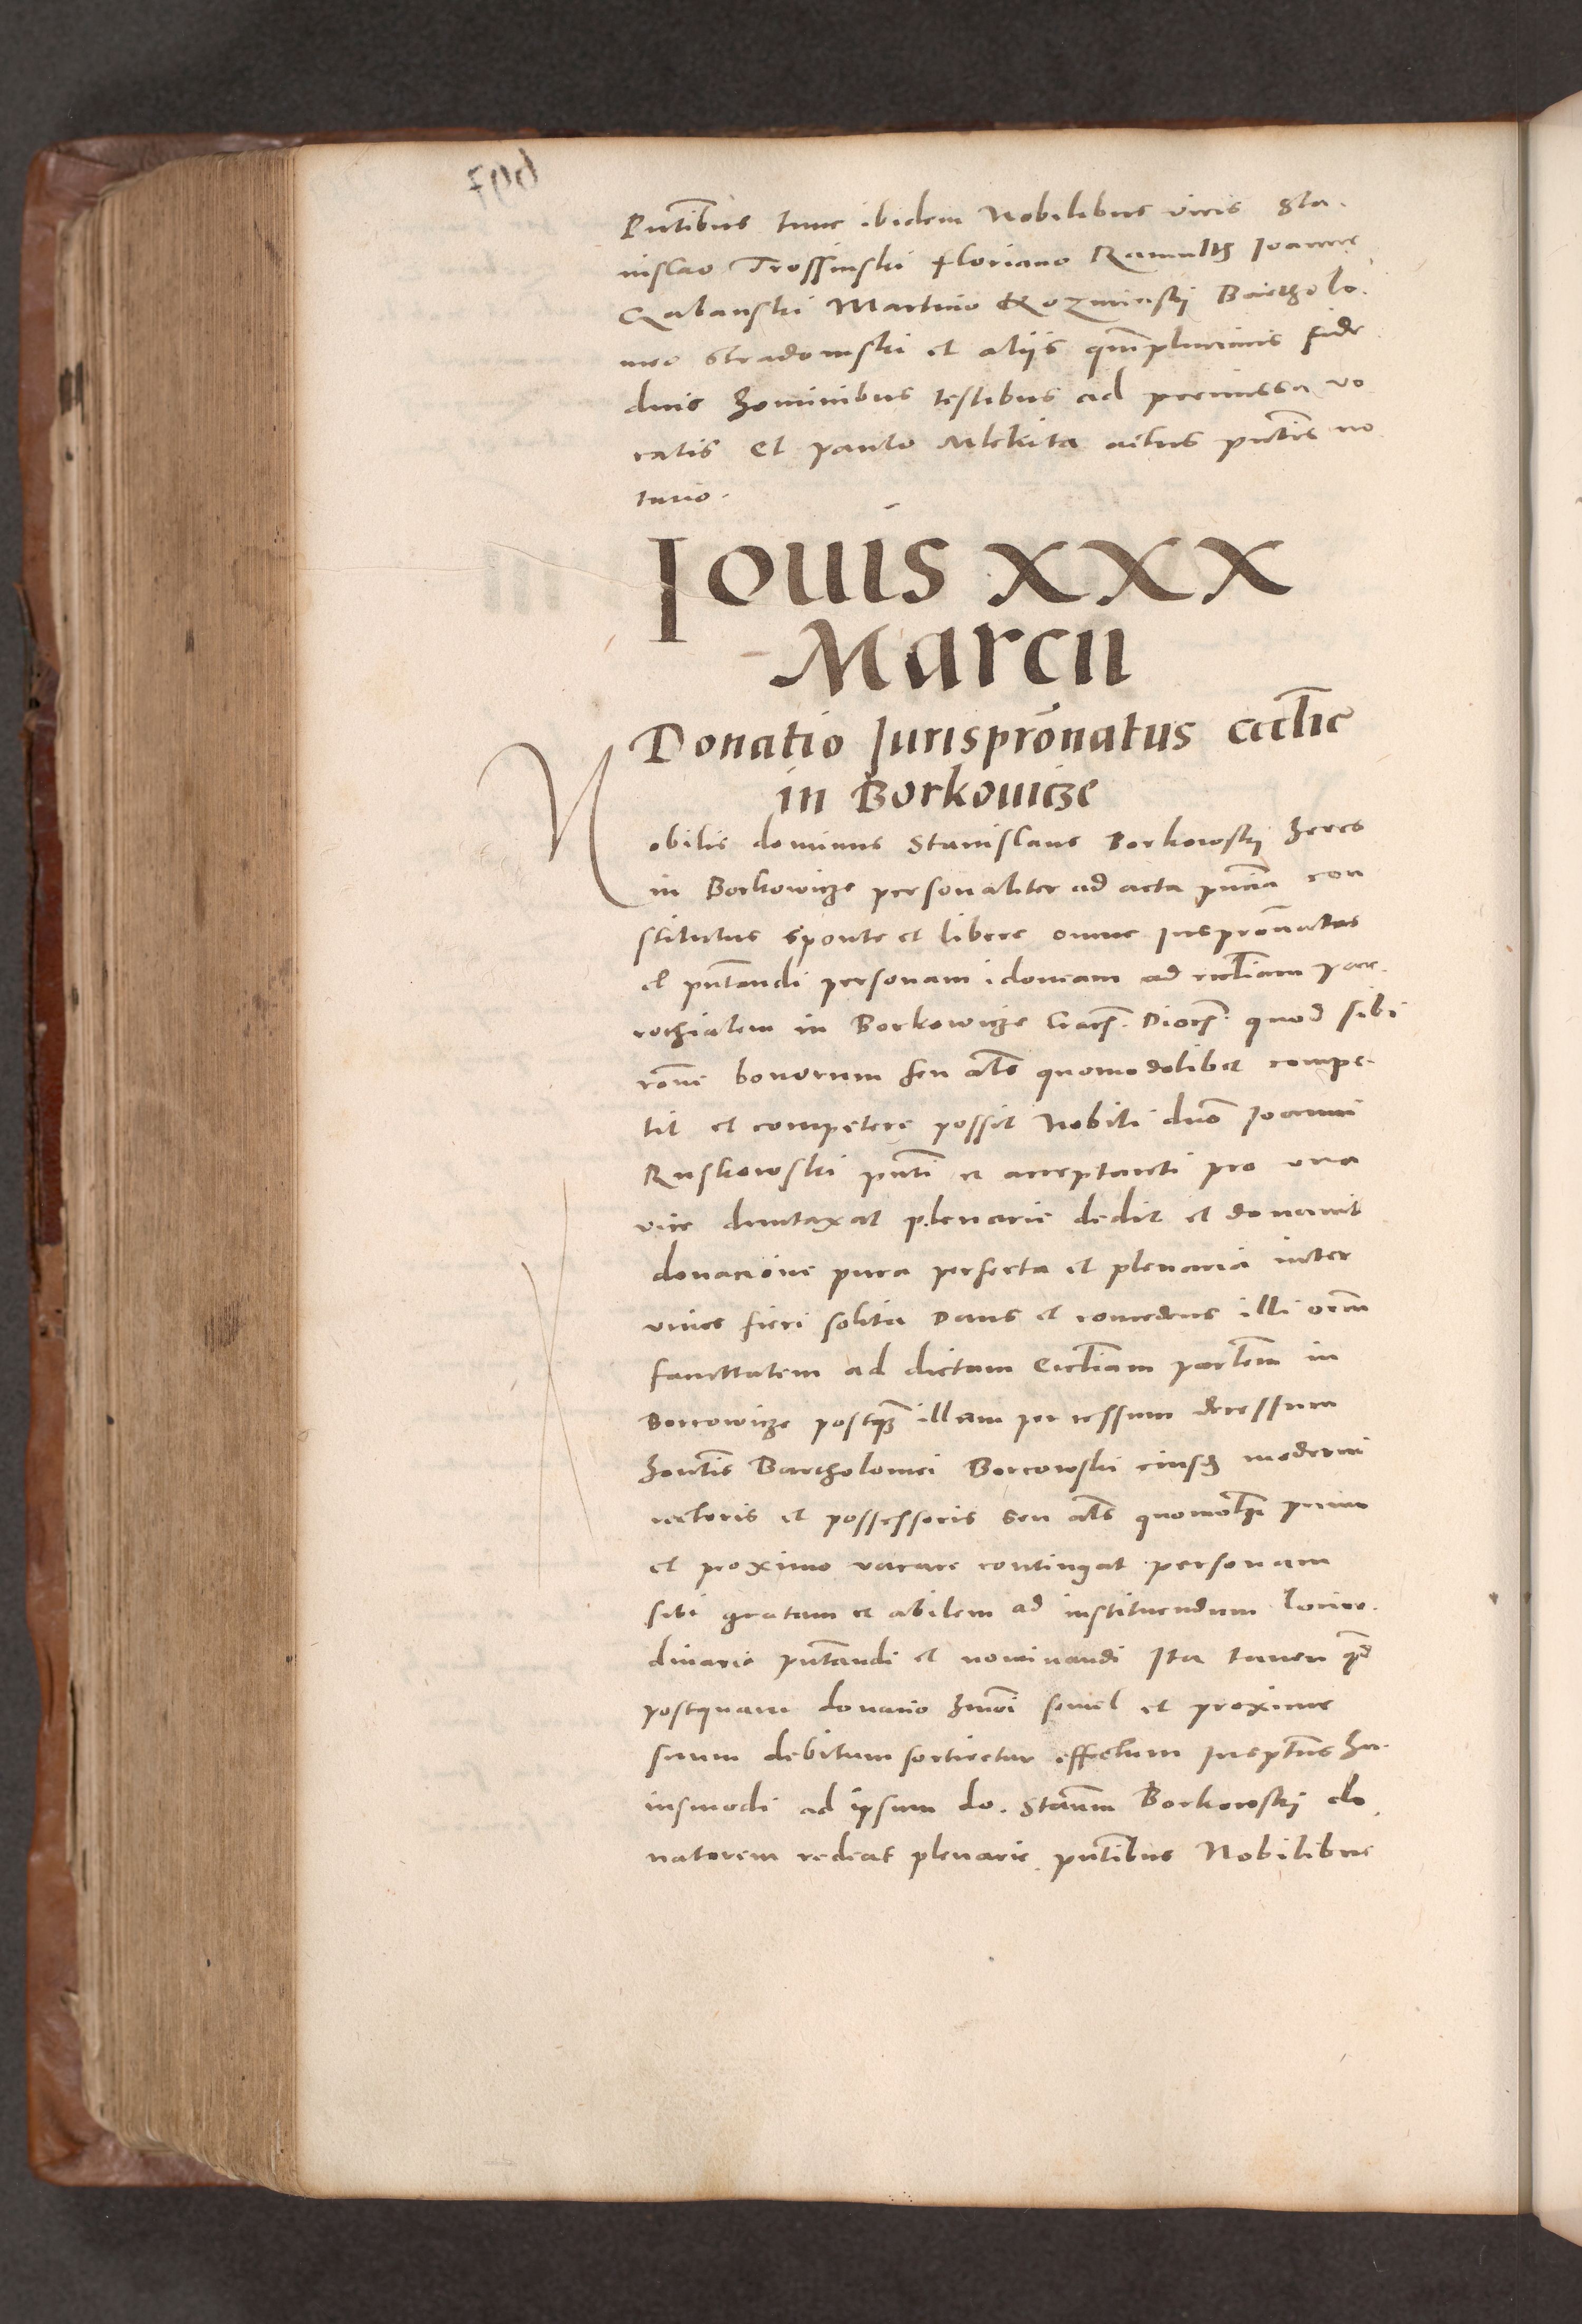 Pntibus tunc ibidem Nobilibus viris Sta-
nislao Trossinski Floriano Ramultħ Joanne
Czabanski Martino Kozminskÿ Bartholo-
meo Stradomski et aliis qmplurimis fide
dnis hominibus testibus ad premissa vo
catis Et paulo Mlekita actus pntis no
tario.
Jouis XXX
Marcii
Donatio Jurisprōnatus ecclie
in Borkouicze
Nobilis dominus Stanislaus Borkowskj heres
in Borkowicze personaliter ad acta pncia con
stitutus sponte et libere omne Jusprōnactus
et pntandi personam idoneam ad eccliam par-
rochialem in Borkowicze Cracs. Diocs. quod sibi
rōni bonorum seu als quomodolibet compe-
tit et competere possit Nobili dno Joanni
Ruskowski pnti et acceptanti pro una
vice duntaxat plenarie dedit et donauit
donacione pura perfecta et plenaria inter
viuos fieri solita Dans et concedens illi oem
facultatem ad dictam Eccliam parlem in
Borcowicze postqz illam per cessum decessum
hontis Bartholomei Borcowski eiusz moderni
rectoris et possessoris Seu als quomolzi primo
et proximo vacare contingat personam
sibi gratam et abilem ad instituendum Locior-
dinarie pntandi et nominandi Ita tamen qd
postquam donatio hmoi semel et proxime
suum debitum sortiretur effectum Jusptus hu-
iusmodi ad ipsum do. Staum Borkowskj do
natorem redeat plenarie. pntibus Nobilibus